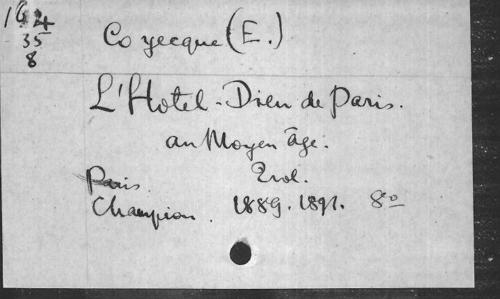 Coyecque (E.)
35
8
L'Hotel-Dieu de Paris.
au Moyen âge.
Paris. 2 vol.
Champion. 1889. 1891. 8º